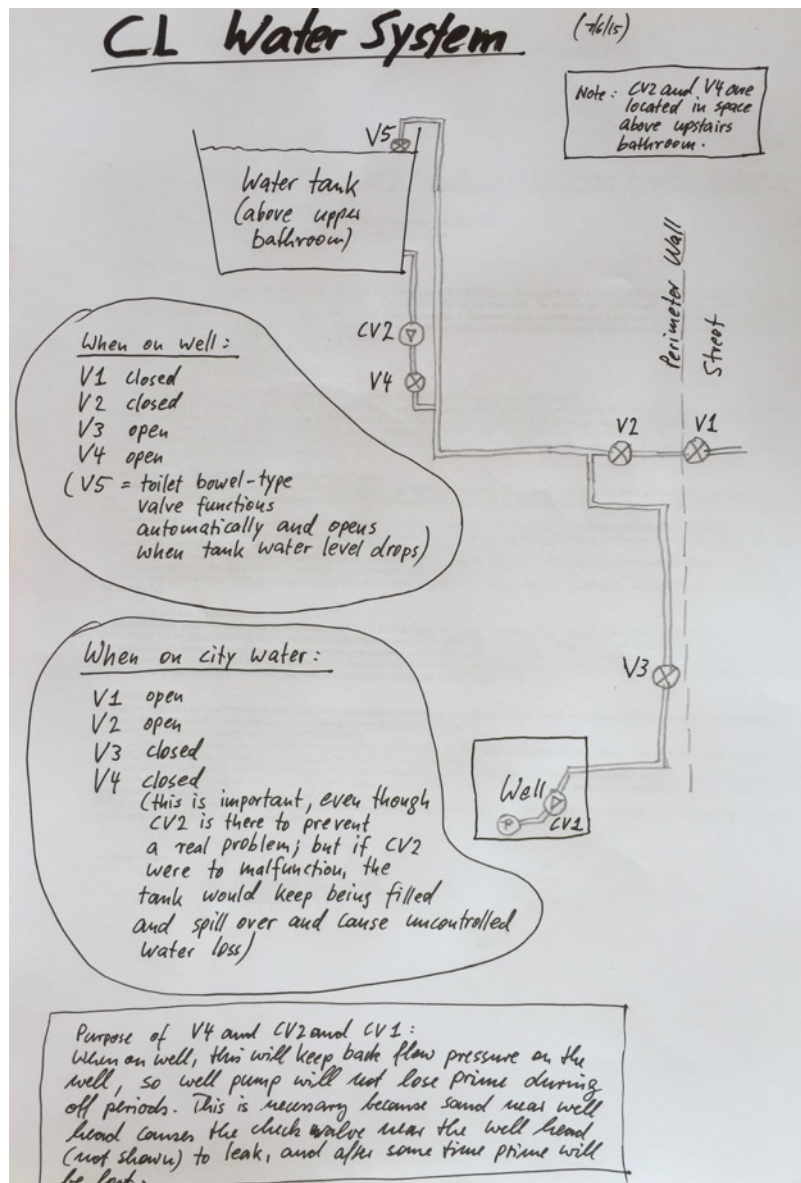 CL Water System
(7/6/15)
Note: CV2 and V4 are
located in space
above upstairs
bathroom.
V5
Water tank
(above upper
bathroom)
Perimeter Wall
Street
CV2
V4
When on well:
V1 closed
V2 closed
V3 open
V4 open
(V5 = toilet bowel-type
valve functions
automatically and opens
when tank water level drops)
V2
V1
V3
When on city water:
V1 open
V2 open
V3 closed
V4 closed
(this is important, even though
CV2 is there to prevent
a real problem; but if CV2
were to malfunction, the
tank would keep being filled
and spill over and cause uncontrolled
water loss)
Well
P
CV1
Purpose of V4 and CV2 and CV1:
When on well, this will keep back flow pressure on the
well, so well pump will not lose prime during
off periods. This is necessary because sand near well
head causes the check valve near the well head
(not shown) to leak, and after some time prime will
be lost.